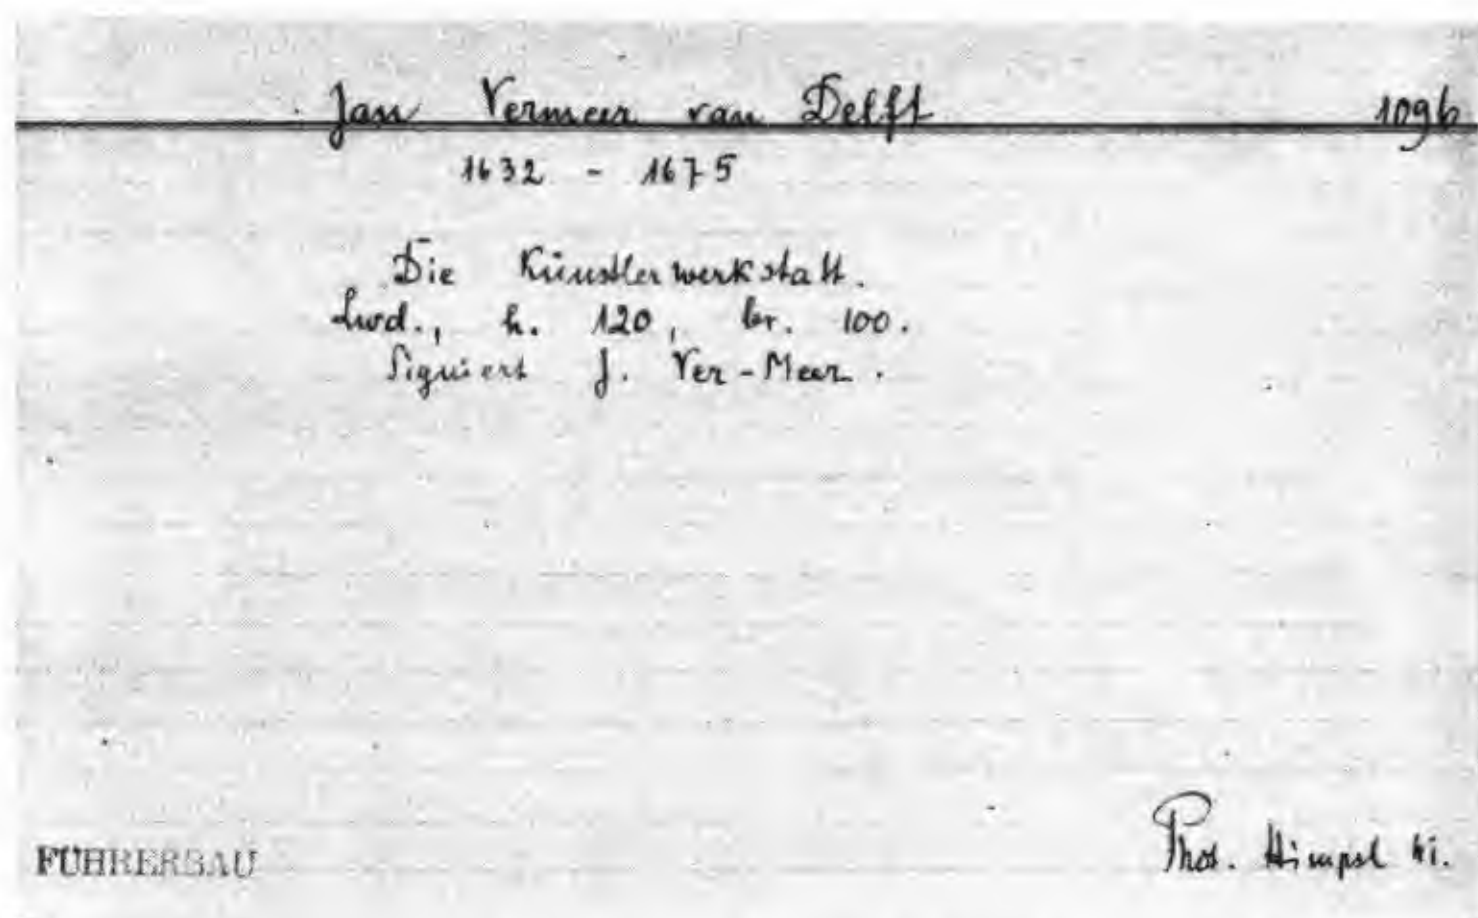 Jan Vermeer van Delft 1096
1632 - 1675
Die Künstlerwerkstatt.
Lwd., h. 120, br. 100.
Signiert J. Ver-Meer.
Phot. Himpsl
FÜHRERBAU